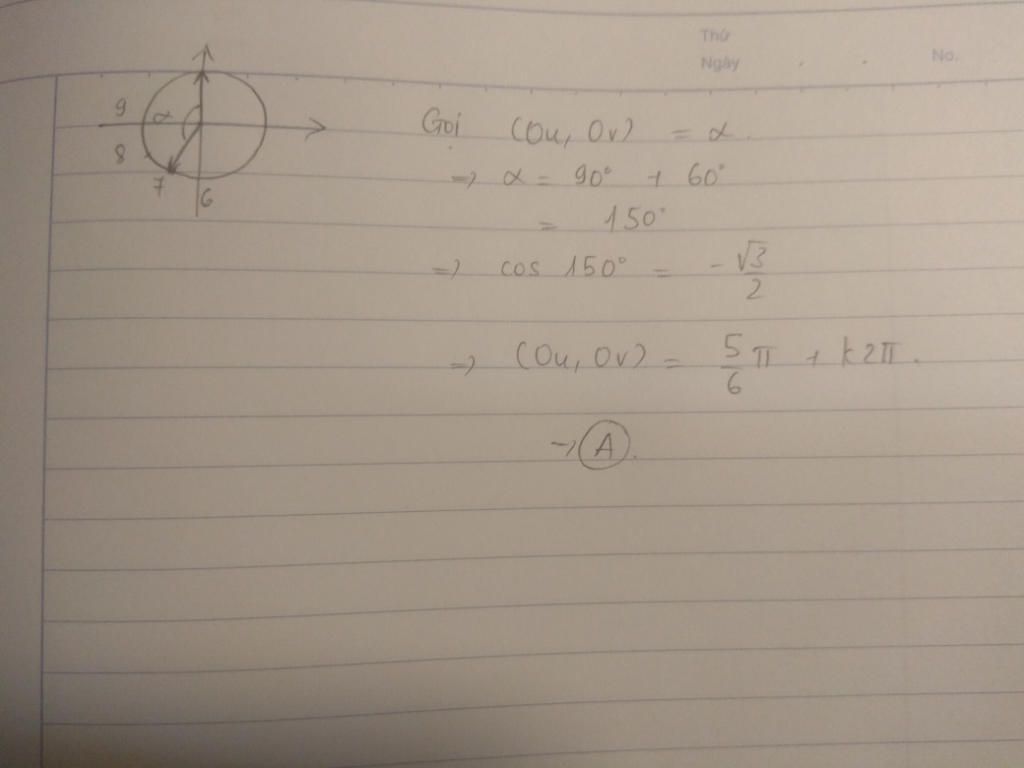 Thứ
Ngày
No.
9
α
8
7
6
Gọi (Ou, Ov) = α.
=> α = 90° + 60°
= 150°
=> cos 150° = -√3/2
=> (Ou, Ov) = 5/6 π + k2π.
→ A.